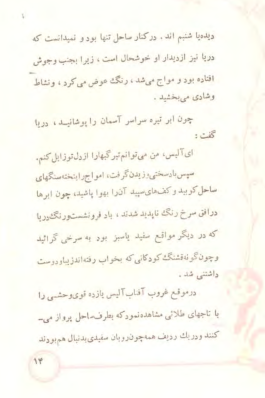 دیده‌یا شبنم اند. درکنار ساحل تنها بود و نمیدانست که
دریا نیز ازدیدار او خوشحال است، زیرا بجنب وجوش
افتاده بود و مواج می‌شد، رنگ عوض می‌کرد، و نشاط
وشادی می‌بخشید.
چون ابر تیره سراسر آسمان را پوشانید، دریا
گفت:
ای آلیس، من می‌توانم تیرگیها را ازدل تو زایل کنم.
سپس بادسختی وزیدن گرفت، امواج را بتخته سنگهای
ساحل کوبید و کف‌های سپید آن را بهوا پاشید، چون ابرها
درافق سرخ رنگ ناپدید شدند، باد فرونشست ورنگ دریا
که در دیگر مواقع سفید یاسبز بود به سرخی گرائید
وچون گونه قشنگ کودکانی که بخواب رفته‌اند زیبا و دوست
داشتنی شد.
درموقع غروب آفتاب آلیس یازده قوی وحشی را
با تاجهای طلائی مشاهده نمود که بطرف ساحل پرواز می‌ـ
کنند و در یک ردیف همه چون روبان سفیدی بدنبال هم بودند
۱۴